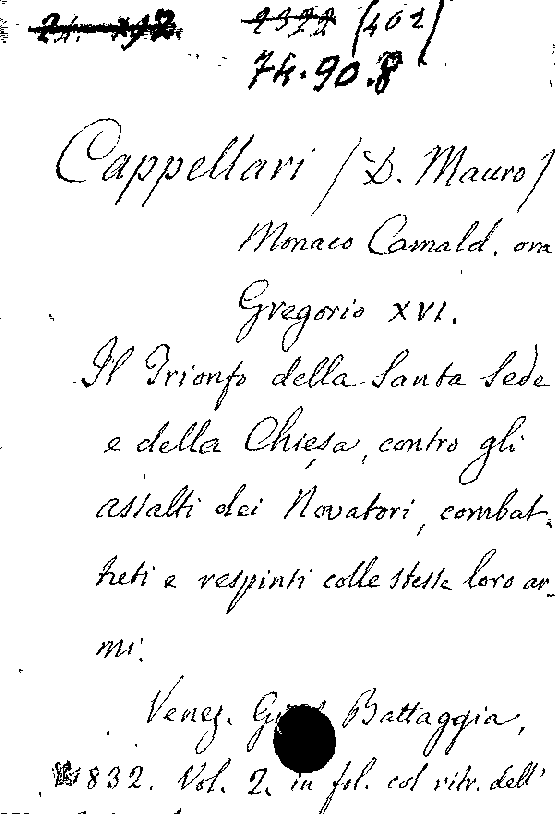 2322 (402)
74.90.8
Cappellari / D. Mauro /
Monaco Camald. ora
Gregorio XVI.
Il Trionfo della Santa Sede
e della Chiesa, contro gli
assalti dei Novatori, combat-
tuti e respinti colle stesse loro ar-
mi.
Venez. Battaggia,
1832. Vol. 2. in fol. col ritr. dell'